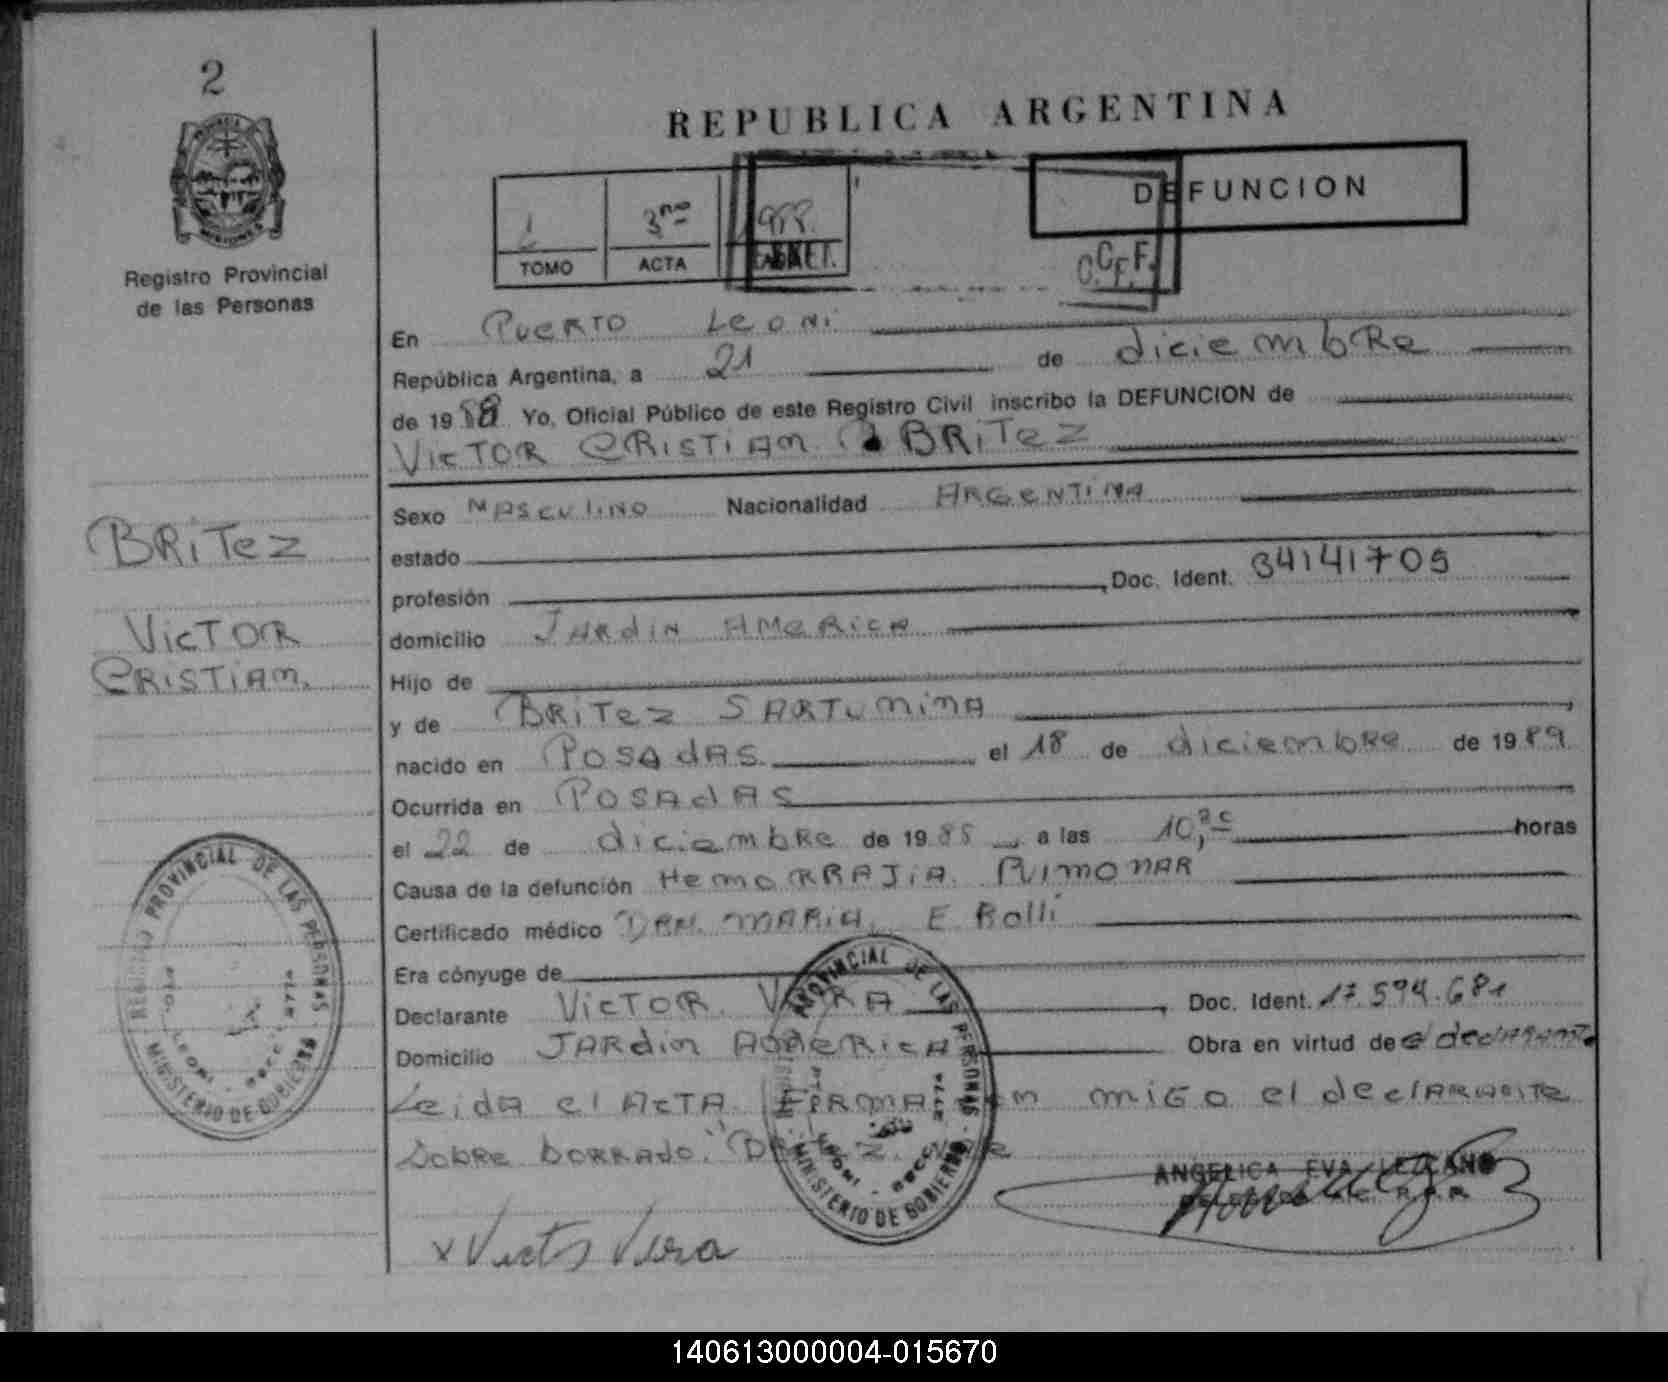 2
REPUBLICA ARGENTINA
DEFUNCION
3ro
TOMO ACTA
C.C.F.F.
Registro Provincial
de las Personas
En PUERTO LEONI
República Argentina, a 21 de diciembre
de 19 Yo, Oficial Público de este Registro Civil inscribo la DEFUNCION de
VicTOR CRISTIAN BRITEZ
Sexo MASCULINO Nacionalidad ARGENTINA
estado
profesión , Doc. Ident. 34141709
domicilio JARDIN AMERICA
Hijo de
y de BRITEZ SARTUNINA
nacido en POSADAS el 18 de diciembre de 1989
Ocurrida en POSADAS
el 22 de diciembre de 19 a las 10, horas
Causa de la defunción HemORRAJIA PULMONAR
Certificado médico DRA. MARIA E Rolli
Era cónyuge de
Declarante VICTOR VERA , Doc. Ident. 17.594.681
Domicilio JARDIN AMERICA Obra en virtud de el declarante
Leida el ACTA FIRMA CON MIGO el declARANTE
SOBRE BORRADO: "BRITEZ.
ANGELICA EVA LEZCANO
x Victor Vera
BRITEZ
VICTOR
CRISTIAN.
REGISTRO PROVINCIAL DE LAS PERSONAS
MINISTERIO DE GOBIERNO
PTO. LEONI
PROVINCIAL DE LAS PERSONAS
MINISTERIO DE GOBIERNO
140613000004-015670